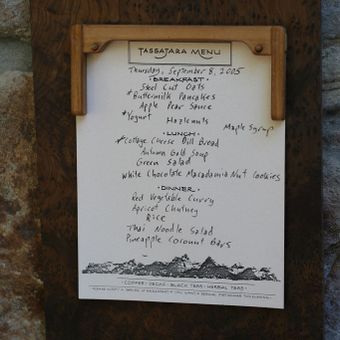 TASSAJARA MENU
Thursday, September 8, 2005
· BREAKFAST ·
Steel Cut Oats
*Buttermilk Pancakes
Apple Pear Sauce
*Yogurt Hazelnuts
Maple Syrup
· LUNCH ·
*Cottage Cheese Dill Bread
Autumn Gold Soup
Green Salad
White Chocolate Macadamia Nut Cookies
· DINNER ·
Red Vegetable Curry
Apricot Chutney
Rice
Thai Noodle Salad
Pineapple Coconut Bars
· COFFEE · DECAF · BLACK TEAS · HERBAL TEAS ·